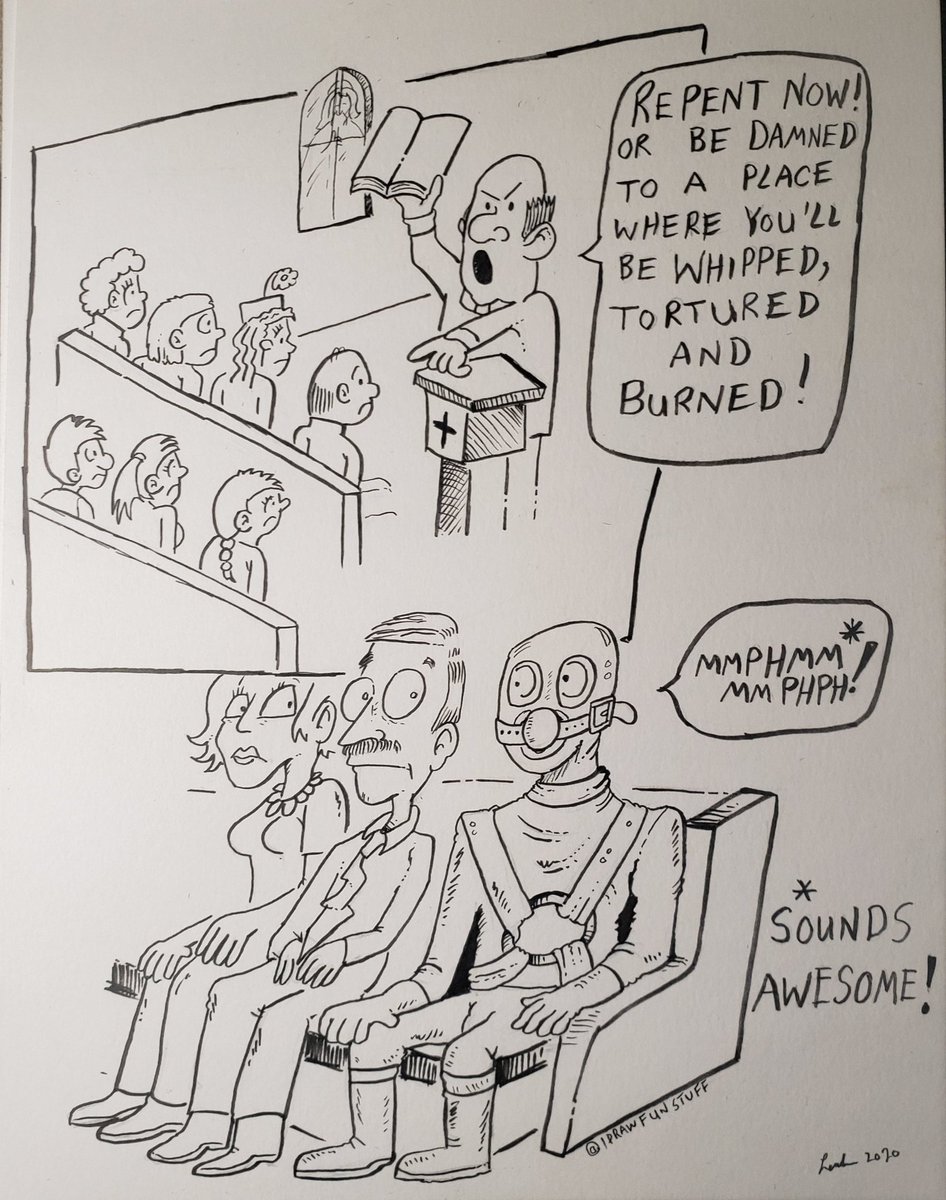 REPENT NOW!
OR BE DAMNED
TO A PLACE
WHERE YOU'LL
BE WHIPPED,
TORTURED
AND
BURNED!
MMPHMM*
MMPHPH!
*
SOUNDS
AWESOME!
@IDRAWFUNSTUFF
2020